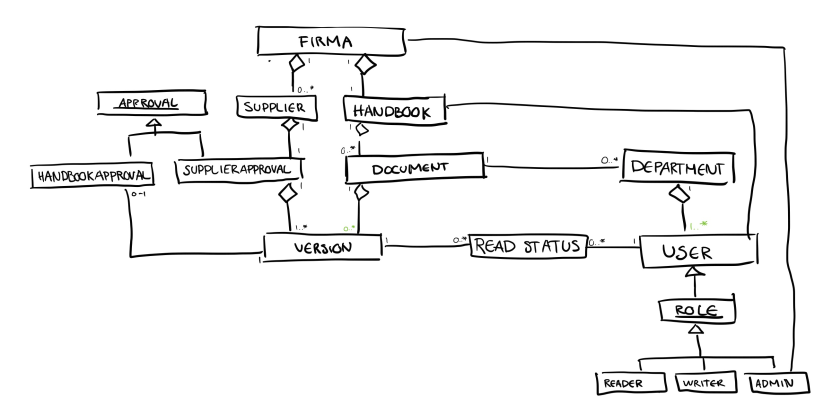 FIRMA
* 1 1
0..* 1
APPROVAL
SUPPLIER
HANDBOOK
1 1
0..*
HANDBOOKAPPROVAL
SUPPLIERAPPROVAL
1
DOCUMENT
1 0..*
DEPARTMENT
0-1
1 1 1
1..* 0..* 1..*
VERSION
1 0..*
READ STATUS
0..* 1
USER
1
ROLE
READER
WRITER
ADMIN